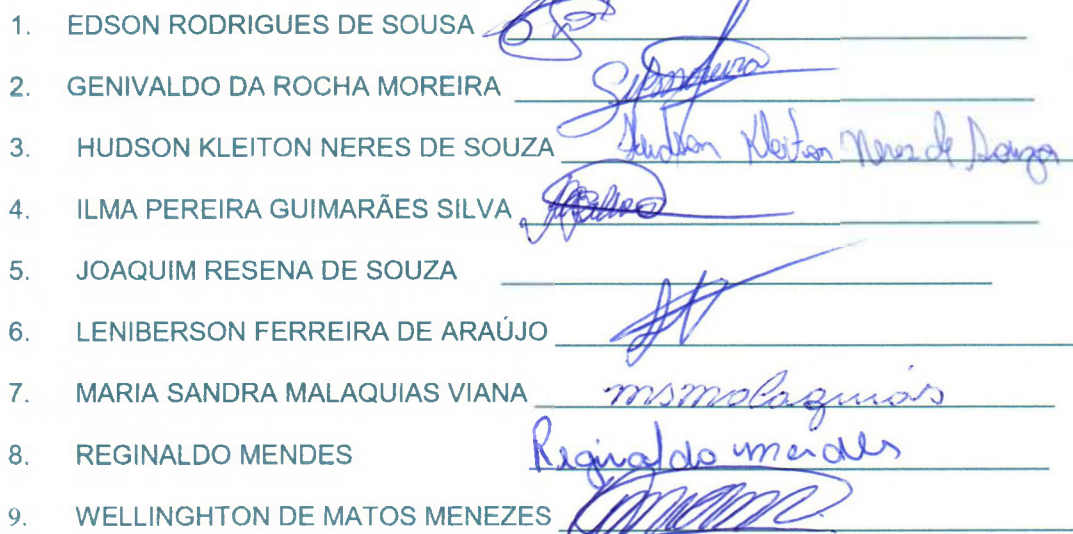 1. EDSON RODRIGUES DE SOUSA
2. GENIVALDO DA ROCHA MOREIRA
3. HUDSON KLEITON NERES DE SOUZA Hudson Kleiton Neres de Souza
4. ILMA PEREIRA GUIMARÃES SILVA
5. JOAQUIM RESENA DE SOUZA
6. LENIBERSON FERREIRA DE ARAÚJO
7. MARIA SANDRA MALAQUIAS VIANA msmalaquias
8. REGINALDO MENDES Reginaldo mendes
9. WELLINGHTON DE MATOS MENEZES